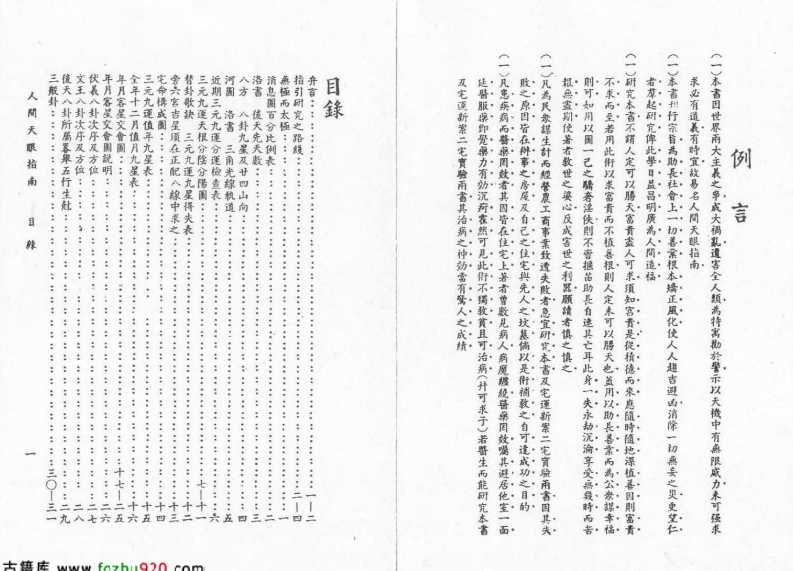 例言
(一)本書因世界兩大主義之爭成大禍亂遺害全人類為特寓勸於警示以天機中有無限威力未可强求
求必有道義有時宜故易名人間天眼指南
(一)本書刋行宗旨為助長社會上一切善業根本矯正風化使人人趨吉避凶消除一切無妄之災更望仁
者羣起研究俾此學日益昌明廣為人間造福
(一)研究本書不謂人定可以勝天富貴盡人可求須知富貴是從積德而來應隨時隨地深植善因則富貴
不求而至若用此術以求富貴而不植善根則人定未可以勝天也蓋用以助長善業而為公衆謀幸福
則可如用以圖一己之驕奢淫佚則不啻揠苗助長自速其亡耳此身一失永劫沉淪享受無幾時而苦
報無盡期使著者救世之婆心反成害世之利器願讀者慎之慎之
(一)凡為民衆謀生計而經營農工商事業致遭失敗者急宜研究本書及宅運新案二宅實驗兩書因其失
敗之原因皆在辦事之房屋及自己之住宅與先人之坟墓倘以是術補救之自可達成功之目的
(一)凡患疾病而醫藥罔效者其因皆在住宅上著者曾數見病人病魔纏繞醫藥罔效囑其避居他室一面
延醫服藥卽覺藥力有効沉疴霍然可見此術不獨救貧且可治病(幷可求子)若醫生而能研究本書
及宅運新案二宅實驗兩書其治病之神効當有驚人之成績
目錄
弁言 一—二
指引研究之路綫 二—四
無極而太極 一
消息圖百分比例表 二
洛書 後天先天數 三
八方 八卦九星及廿四山向 四
河圖 洛書 三角光線軌道 五
近期三元九運分運檢查表 六
三元九運天根分陰分陽圖 七—十一
替卦歌訣 三元九運九星得失表 十二
旁六宮吉星須在正配八線中求之 十三
宅命構成圖 十四
三元九運值年九星表 十五
全年十二月值月九星表 十六
年月客星交會圖 十七—二五
年月客星交會圖說明 二六
伏羲八卦次序及方位 二七
文王八卦次序及方位 二八
後天八卦所屬畧舉五行生尅 二九
三般卦 三〇—三一
人間天眼指南 目錄 一
古籍库 www.fozhu920.com